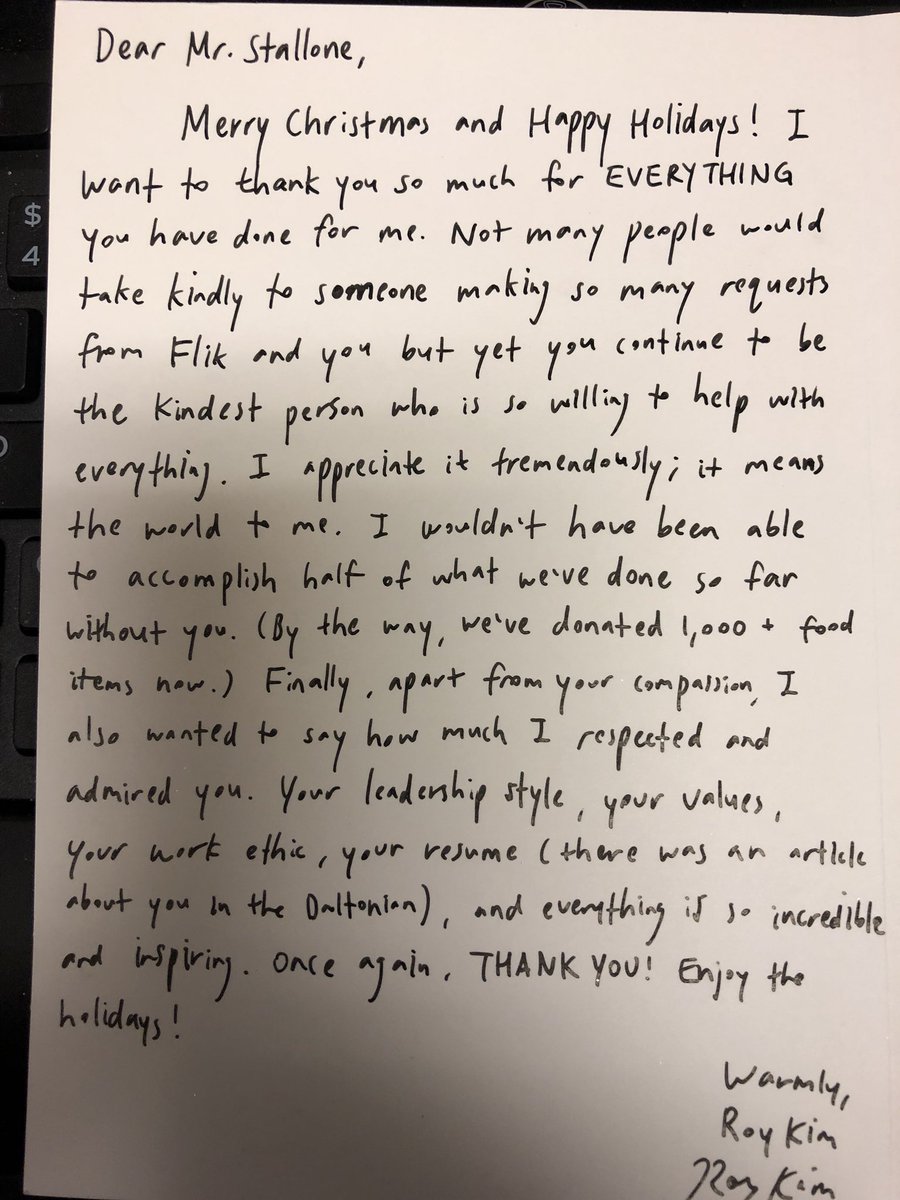 $
4
Dear Mr. Stallone,
Merry Christmas and Happy Holidays! I
want to thank you so much for EVERYTHING
you have done for me. Not many people would
take kindly to someone making so many requests
from Flik and you but yet you continue to be
the kindest person who is so willing to help with
everything. I appreciate it tremendously; it means
the world to me. I wouldn't have been able
to accomplish half of what we've done so far
without you. (By the way, we've donated 1,000 + food
items now.) Finally, apart from your compassion, I
also wanted to say how much I respected and
admired you. Your leadership style, your values,
your work ethic, your resume (there was an article
about you in the Daltonian), and everything is so incredible
and inspiring. Once again, THANK YOU! Enjoy the
holidays!
Warmly,
Roy Kim
Roy Kim